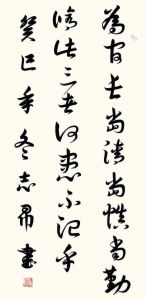 為官長當清當慎當勤
修此三者何患不治乎
癸巳年冬志昂書